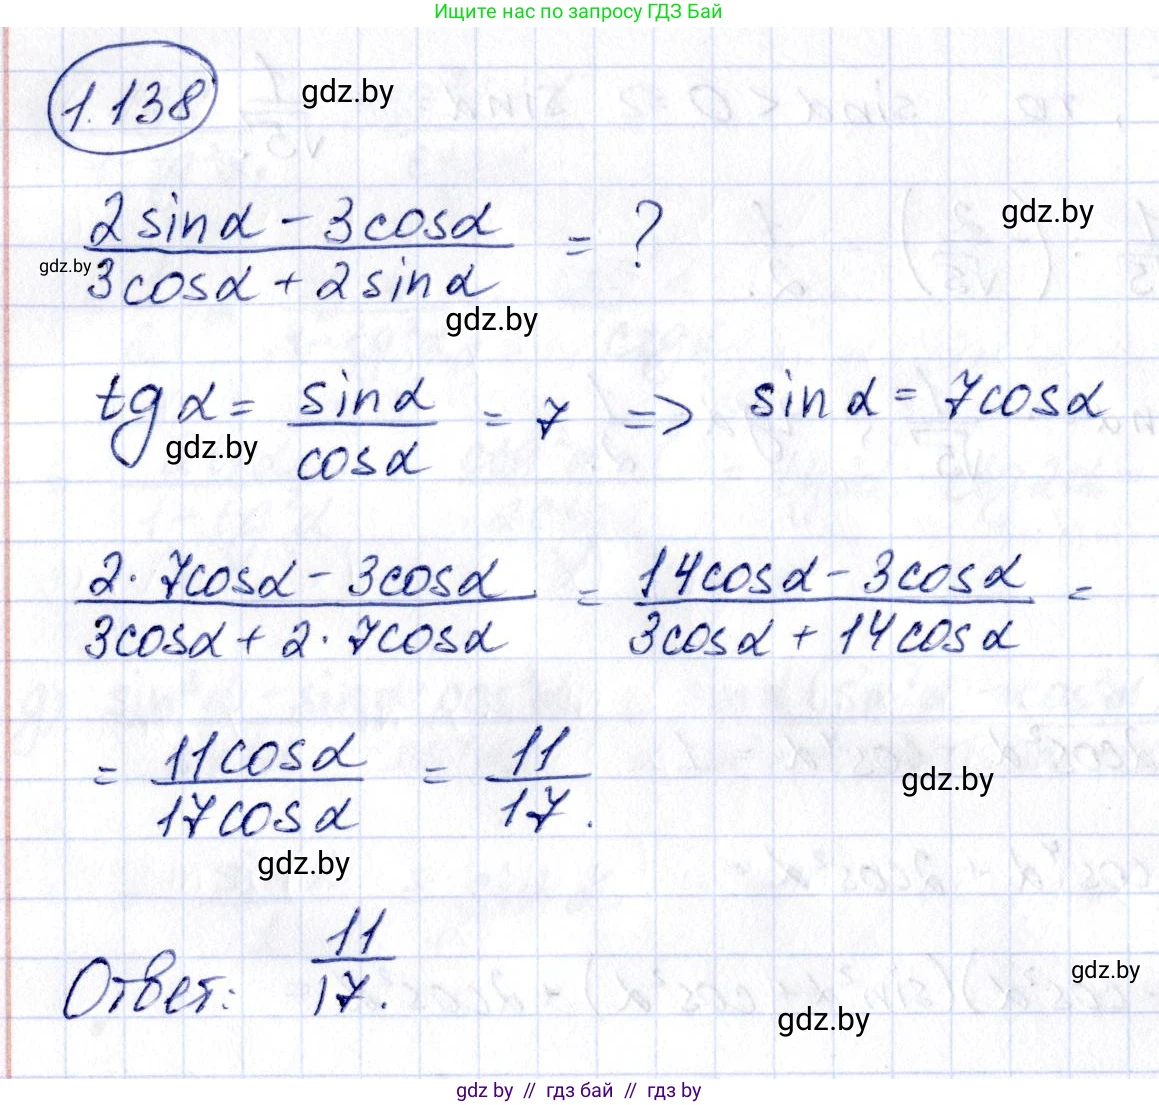 Ищите нас по запросу ГДЗ Бай
1.138 gdz.by
(2 sin α − 3 cos α)/(3 cos α + 2 sin α) = ? gdz.by
gdz.by
gdz.by
tg α = sin α/cos α = 7 => sin α = 7 cos α
gdz.by
(2 · 7 cos α − 3 cos α)/(3 cos α + 2 · 7 cos α) = (14 cos α − 3 cos α)/(3 cos α + 14 cos α) =
= 11 cos α/17 cos α = 11/17. gdz.by
gdz.by
Ответ: 11/17.
gdz.by
gdz.by
gdz by // гдз бай // гдз by